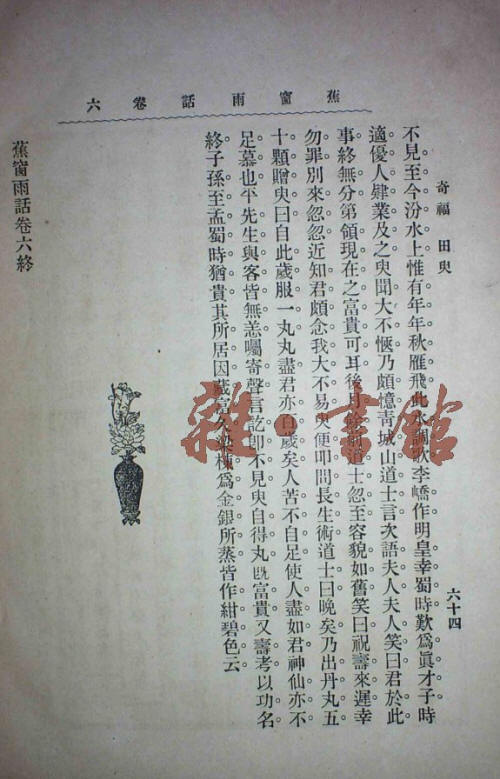 蕉窗雨話卷六
奇福 田叟 六十四
不見至今汾水上惟有年年秋雁飛此水調歌李嶠作明皇幸蜀時歎爲眞才子時
適優人肄業及之叟聞大不愜乃頗憶靑城山道士言次語夫人夫人笑曰君於此
事終無分第領現在之富貴可耳後月餘前道士忽至容貌如舊笑曰祝壽來遲幸
勿罪別來忽忽近知君頗念我大不易叟便叩問長生術道士曰晚矣乃出丹丸五
十顆贈叟曰自此歲服一丸丸盡君亦百歲矣人苦不自足使人盡如君神仙亦不
足慕也平先生與客皆無恙囑寄聲言訖卽不見叟自得丸旣富貴又壽考以功名
終子孫至孟蜀時猶貴其所居因藏富久梁棟爲金銀所蒸皆作紺碧色云
蕉窗雨話卷六終
雜·書館